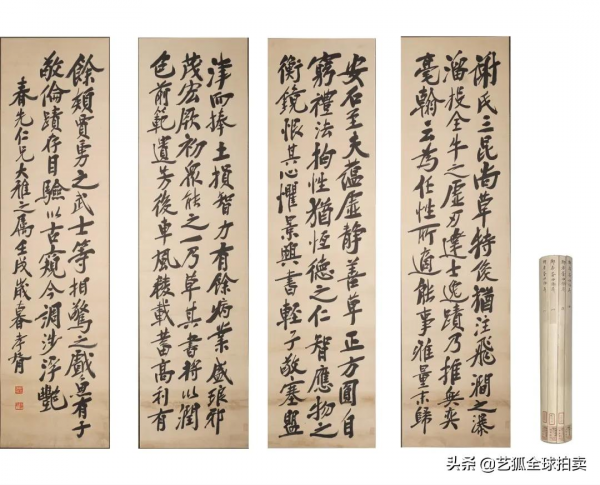 謝氏三昆尚草特俊猶注飛澗之瀑
溜投全牛之虛刃達士逸蹟乃推無奕
毫翰云為任性所適能事雖量未歸
安石至夫蘊虛靜善草正方圓自
窮禮法拘性猶恆德之仁智應物之
衡鏡恨其心懼景興書輕子敬塞盟
津而捧土損智力有餘病業盛琅邪
茂宏厥初眾能之一乃草其書將以潤
色前範遺芳後車風稜載蓄高利有
餘類賈勇之武士等相驚之戲魚有子
敬倫蹟存目驗以古窺今調涉浮艷
春先仁兄大雅之屬壬戌歲暮孝胥
头条 @艺狐全球拍卖